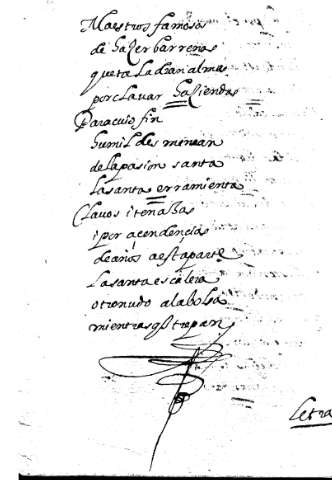 Maestros famosos
de hazer barrenos
que taladran almas
por clavar haziendas
Para cuio fin
humildes menean
de la pasion santa
la santa erramienta
Clavos i tenazas
i por acendencias
de años a esta parte
la santa escalera
otro nudo a la bolsa
mientras q̃ trepan
Letra